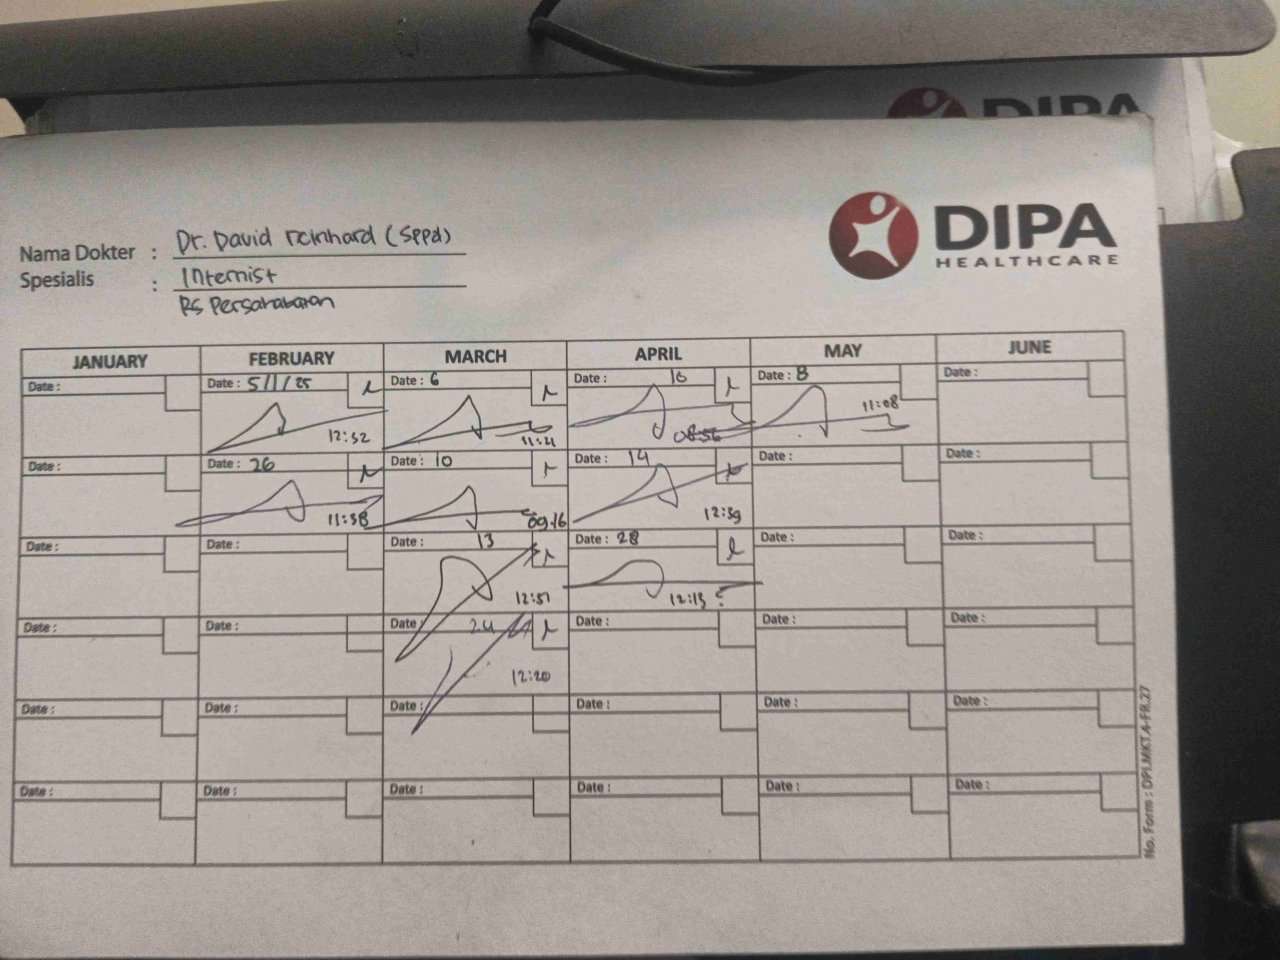 DIPA
DIPA
HEALTHCARE
Nama Dokter : Dr. David reinhard (Sppd)
Spesialis : Internist
RS Persahabatan
JANUARY FEBRUARY MARCH APRIL MAY JUNE
Date : Date : 5/1/25 Date : 6 Date : 10 Date : 8 Date :
12:32 11:21 08:56 11:08
Date : Date : 26 Date : 10 Date : 14 Date : Date :
11:58 09.16 12:39
Date : Date : Date : 13 Date : 28 Date : Date :
12:51 12:13
Date : Date : Date : 24 Date : Date : Date :
12:20
Date : Date : Date : Date : Date : Date :
Date : Date : Date : Date : Date : Date :
No. Form : DPI.MKT.4-FR.27